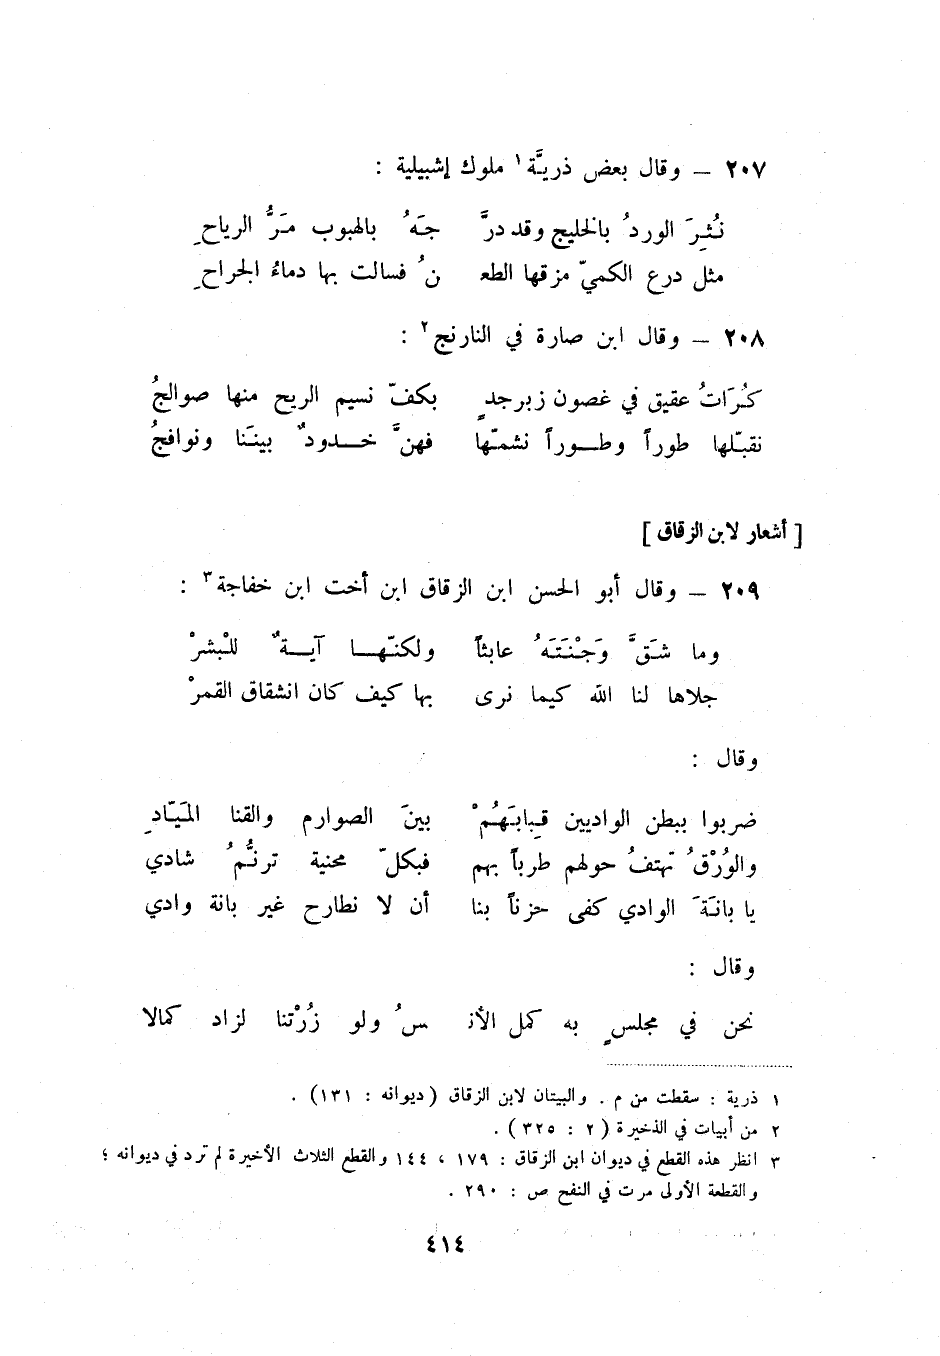 ٢٠٧ – وقال بعض ذريَّة ١ ملوك إشبيلية :
نُثِرَ الوردُ بالخليج وقد درَّ جَهُ بالهبوب مَرُّ الرياحِ
مثل درع الكميّ مزقها الطع نُ فسالت بها دماءُ الجراحِ
٢٠٨ – وقال ابن صارة في النارنج ٢ :
كُرَاتُ عقيق في غصون زبرجدٍ بكفّ نسيم الريح منها صوالجُ
نقبّلها طوراً وطوراً نشمّها فهنَّ خدودٌ بينَنا ونوافجُ
[ أشعار لابن الزقاق ]
٢٠٩ – وقال أبو الحسن ابن الزقاق ابن أخت ابن خفاجة ٣ :
وما شَقَّ وَجْنَتَهُ عابثاً ولكنّها آيةٌ للْبشرْ
جلاها لنا الله كيما نرى بها كيف كان انشقاق القمرْ
وقال :
ضربوا ببطن الواديين قِبابَهُمْ بينَ الصوارم والقنا المَيّادِ
والوُرْقُ تهتفُ حولهم طرباً بهم فبكلّ محنية ترنُّمُ شادي
يا بانَةَ الوادي كفى حزناً بنا أن لا نطارح غير بانة وادي
وقال :
نحن في مجلسٍ به كمل الأنـ سُ ولو زُرْتنا لزاد كمالا
١ ذرية : سقطت من م . والبيتان لابن الزقاق ( ديوانه : ١٣١ ) .
٢ من أبيات في الذخيرة ( ٢ : ٣٢٥ ) .
٣ انظر هذه القطع في ديوان ابن الزقاق : ١٧٩ ، ١٤٤ والقطع الثلاث الأخيرة لم ترد في ديوانه ؛
والقطعة الأولى مرت في النفح ص : ٢٩٠ .
٤١٤